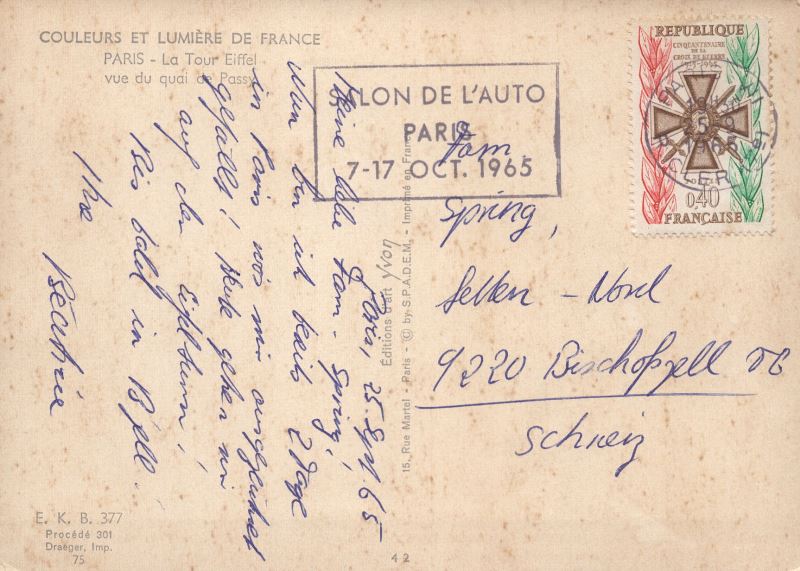 COULEURS ET LUMIÈRE DE FRANCE
PARIS - La Tour Eiffel
vue du quai de Passy
Paris, 25. Sept. 65
Meine liebe Fam. Spring,
Nun bin ich bereits 2 Tage
in Paris wos mir ausgezeichnet
gefällt! Heute gehen wir
auf den Eiffelturm!
Bis bald in B'zell.
Ihre
Béatrice
E. K. B. 377
Procédé 301
Draeger, Imp.
75
Éditions d'art yvon
15, Rue Martel - Paris - © by S.P.A.D.E.M. - Imprimé en France
42
SALON DE L'AUTO
PARIS
7-17 OCT. 1965
RÉPUBLIQUE
CINQUANTENAIRE
DE LA
CROIX DE GUERRE
0,40
FRANÇAISE
Fam.
Spring,
Nord
9220 Bischofszell TG
Schweiz